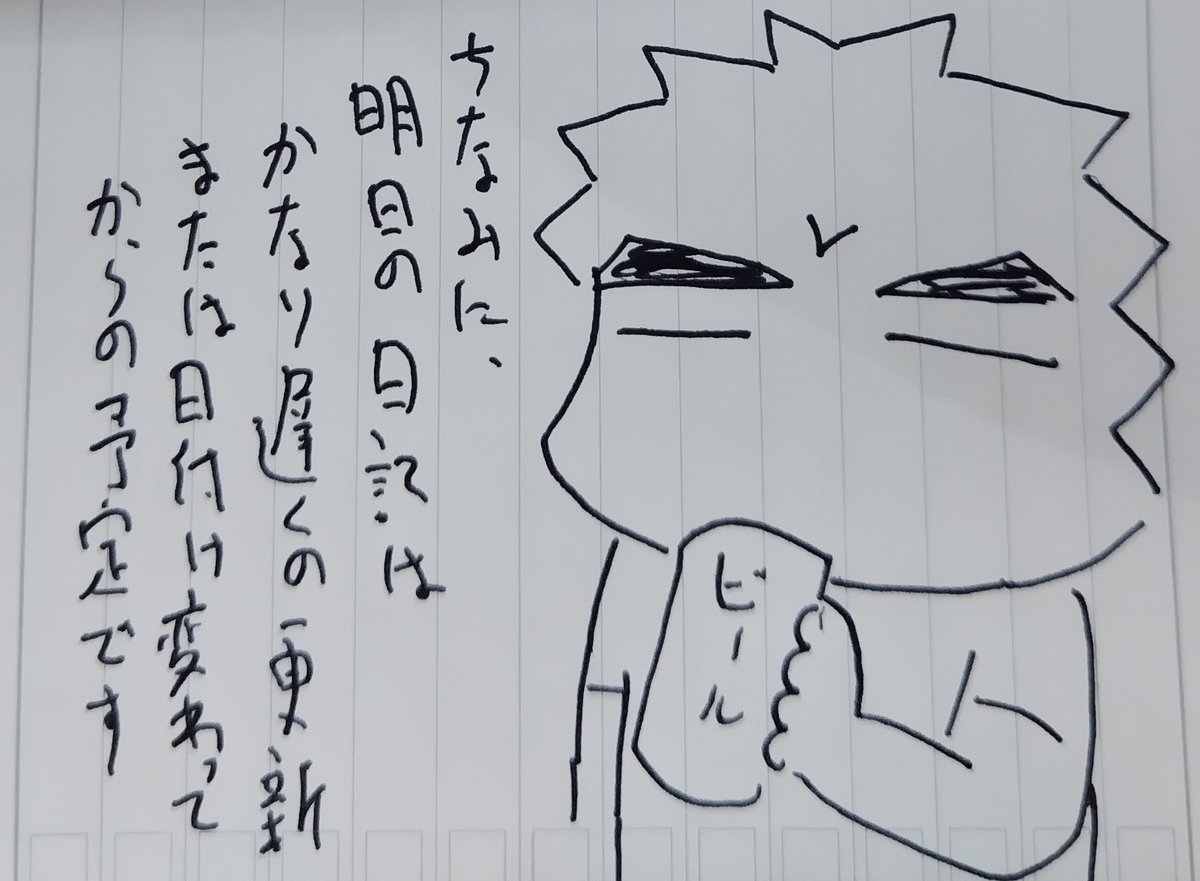 ちなみに、
明日の日記は
かなり遅くの更新
または日付け変わって
からの予定です
ビール